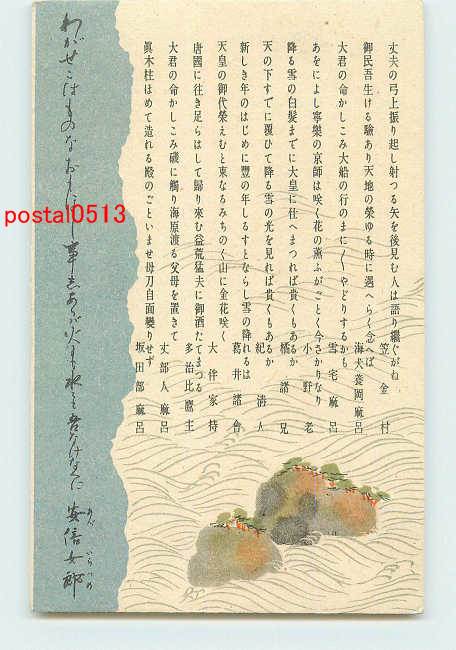 丈夫の弓上振り起し射つる矢を後見む人は語り繼ぐがね
笠金村
御民吾生ける驗あり天地の榮ゆる時に遇へらく念へば
海犬養岡麻呂
大君の命かしこみ大船の行のまに〱やどりするかも
雪宅麻呂
あをによし寧樂の京師は咲く花の薰ふがごとく今さかりなり
小野老
降る雪の白髮までに大皇に仕へまつれば貴くもあるか
橘諸兄
天の下すでに覆ひて降る雪の光を見れば貴くもあるか
紀淸人
新しき年のはじめに豐の年しるすとならし雪の降れるは
葛井諸會
天皇の御代榮えむと東なるみちのく山に金花咲く
大伴家持
唐國に往き足らはして歸り來む益荒猛夫に御酒たてまつる
多治比鷹主
大君の命かしこみ磯に觸り海原渡る父母を置きて
丈部人麻呂
眞木柱ほめて造れる殿のごといませ母刀自面變りせず
坂田部麻呂
わがせこはものなおもほし事しあらば火にも水にも吾なけなくに
安倍女郎
postal0513